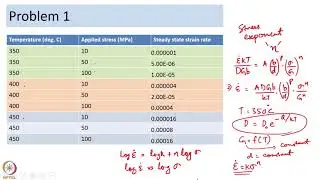 Problem 1
Temperature (deg. C) Applied stress (MPa) Steady state strain rate
350 10 0.000001
350 50 5.00E-06
350 100 1.00E-05
400 10 0.000004
400 50 2.00E-05
400 100 0.00004
450 10 0.000016
450 50 0.00008
450 100 0.00016
Stress
exponent
n
ε̇kT/DGb = A(b/d)^p (σ/G)^n
⇒ ε̇ = ADGb/kT (b/d)^p σ^n/G^n
T = 350°C
D = D₀e^-Q/kT
G = f(T) → constant
d = constant
ε̇ = Kσ^n
log ε̇ = log K + n log σ
log ε̇ vs log σ
NPTEL